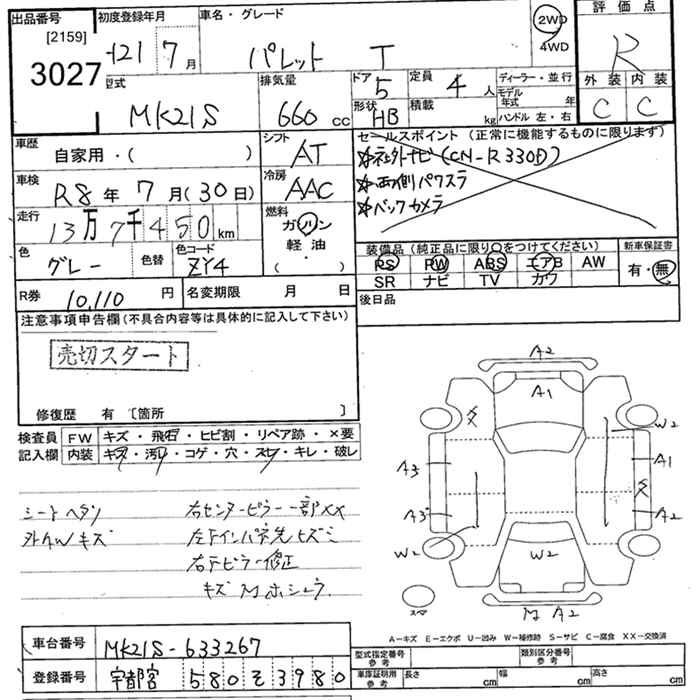 出品番号
[2159]
3027
初度登録年月
21 7月
車名・グレード
パレット T
2WD
4WD
評価点
R
外装 内装
C C
型式
MK21S
排気量
660 cc
ドア
5
形状
HB
定員
4 人
積載
kg
ディーラー・並行
モデル年式 年
ハンドル 左・右
車歴
自家用・( )
シフト
AT
車検
R8年 7月(30日)
冷房
AAC
走行
13万7千450km
燃料
ガソリン
軽油
( )
色
グレー
色替
色コード
ZY4
セールスポイント (正常に機能するものに限ります)
☆社外ナビ(CN-R330D)
☆両側パワスラ
☆バックカメラ
装備品 (純正品に限り○をつけてください)
PS PW ABS エアB AW
SR ナビ TV カワ
新車保証書
有・無
R券 10,110円
名変期限 月 日
後日品
注意事項申告欄(不具合内容等は具体的に記入して下さい)
売切スタート
修復歴 有 [箇所 ]
検査員記入欄
FW キズ・飛石・ヒビ割・リペア跡・×要
内装 キズ・汚れ・コゲ・穴・スレ・キレ・破レ
シートヘタリ
外AWキズ
右センターピラー一部XX
左Fインパネ先ヒズミ
右Fピラー修正
キズ
A2
A1
W2
A3
A1
A3
A2
W2
W2
A2
スペア
A-キズ E-エクボ U-凹み W-補修跡 S-サビ C-腐食 XX-交換済
車台番号
MK21S-633267
登録番号
宇都宮 580 そ 3980
型式指定番号 参考
類別区分番号 参考
車庫証明用 参考
長さ cm
幅 cm
高さ cm